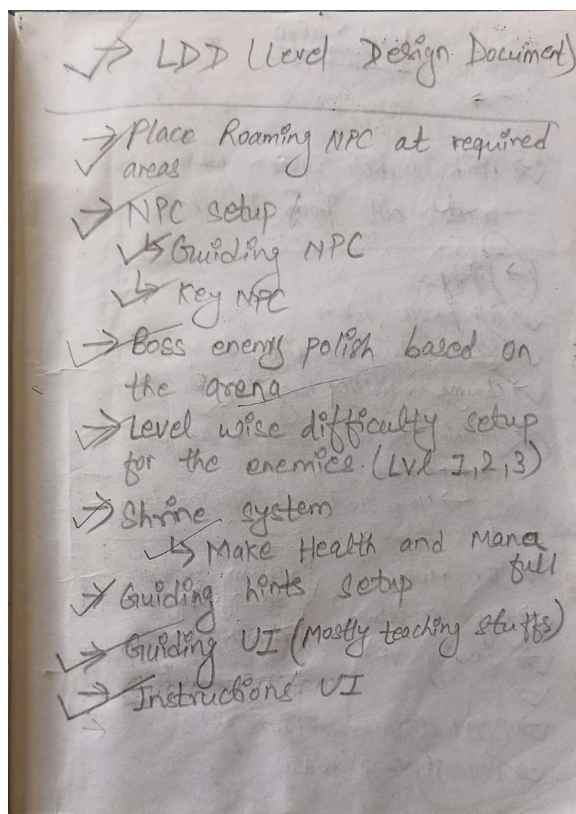 → LDD (Level Design Document)
→ Place Roaming NPC at required
areas
→ NPC setup
↳ Guiding NPC
↳ Key NPC
→ Boss enemy polish based on
the arena
→ Level wise difficulty setup
for the enemies. (Lvl 1,2,3)
→ Shrine system
↳ Make Health and Mana
full
→ Guiding hints setup
→ Guiding UI (Mostly teaching stuffs)
→ Instructions UI